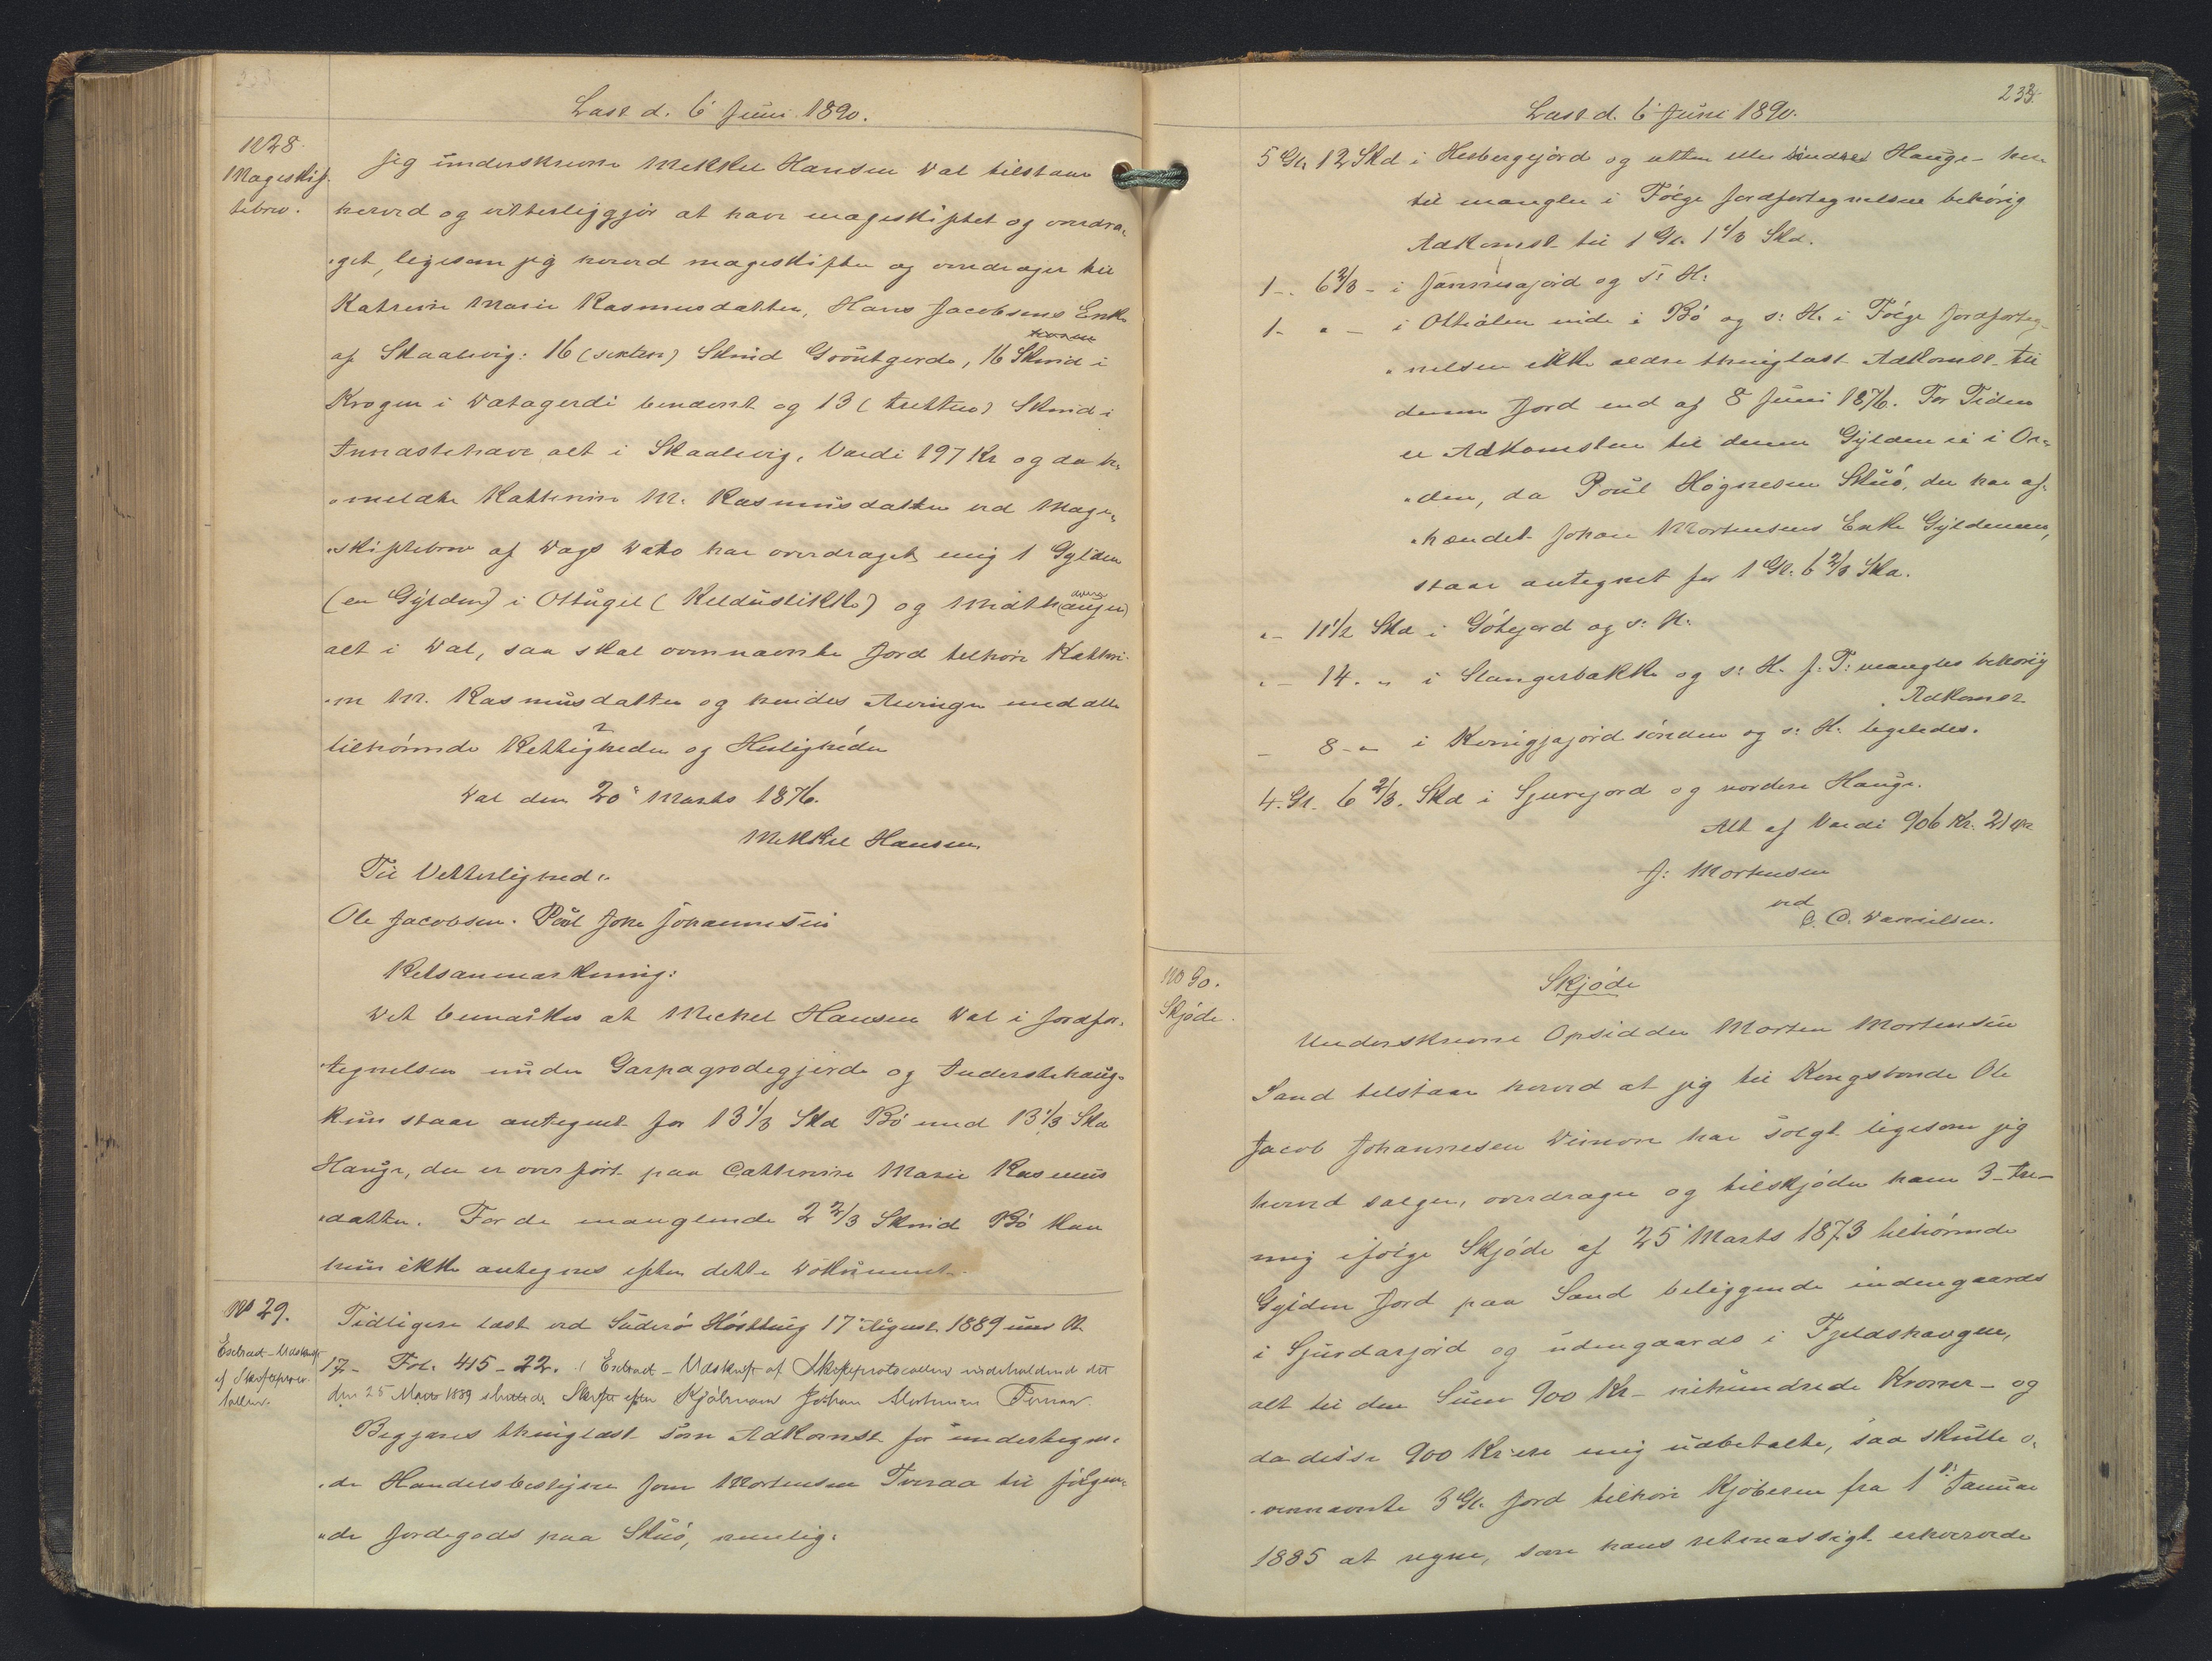 Læst d. 6' Juni 1890.
No 28.
Mageskif-
tebrev.
Jeg underskrevne Mikkel Hansen Dal tilstaar
herved og vitterliggjør at have mageskiftet og overdra-
get, ligesom jeg herved mageskifter og overdrager til
Katrine Marie Rasmusdatter, Hans Jacobsens Enke
af Skaalevig: 16 (sexten) Skind Groutgerde, 16 Skind i
Krogen i Datagerdi benævnt og 13 (tretten) Skind i
Innastehave alt i Skaalevig, Værdi 197 Kr og da be-
meldte Kathrine M. Rasmusdatter ved Mage-
skiftebrev af Dags Dato har overdraget mig 1 Gylden
(en Gylden) i Ottugil (Keldustikke) og Midthaugen
alt i Dal, saa skal ovennævnte Jord tilhøre Kathri-
ne M. Rasmusdatter og hendes Arvinger med alle
tilhørende Rettigheder og Herligheder
Dal den 20' Marts 1876.
Mikkel Hansen
Til Vitterlighed:
Ole Jacobsen. Poul Johs Johannesen
Retsanmærkning:
Det bemærkes at Mickel Hansen Dal i Jordfor-
tegnelsen under Garpagrodegjerde og Inderstehauge
kun staar antegnet for 13 1/3 Skd Bø med 13 1/3 Skd
Hauge, der er overført paa Cathrine Marie Rasmus
datter. For de manglende 2 2/3 Skind Bø kan
hun ikke antegnes efter dette Dokument.
No 29.
Extract-Udskrift
af Skifteproto-
kollen.
Tidligere læst ved Suderø Høstting 17 August 1889 under No
17 - Fol. 415-22. Extract-Udskrift af Skifteprotocollen indeholdende det
den 25 Marts 1889 sluttede Skifte efter Kjøbmand Johan Mortensen Tveraa
Begjæres thinglæst som Adkomst for undertegne-
de Handelsbestyrer Jens Mortensen Tveraa til følgen-
de Jordegods paa Skuø, nemlig:
Læst d. 6' Juni 1890.
233.
5 Gl. 12 Skd i Hesbergejord og atten eller søndre Hauge - her
til mangler i Følge Jordfortegnelsen behørig
Adkomst til 1 Gl. 1 1/3 Skd.
1 - 6 2/3 - i Jannesajord og s: H:
1 - " - i Ottiålen nide i Bø og s: H. i Følge Jordforteg-
nelsen ikke ældre thinglæst Adkomst til
denne Jord end af 8 Juni 1876. For Tiden
er Adkomsten til denne Gylden ei i Or-
den, da Poul Høgnesen Skuø, der har af-
hændet Johan Mortensens Enke Gyldenen,
staar antegnet for 1 Gl. 6 2/3 Skd.
" - 11 1/2 Skd i Gøtejord og s: H:
" - 14. " i Slangerbakke og s: H. J: F: mangles behørig
Adkomst
- 8 - " i Konigjajord sønden og s: H. ligeledes.
4. Gl. 6 2/3. Skd i Gjurejord og nordere Hauge.
Alt af Værdi 906 Kr. 21 Øre
J: Mortensen
ved
C. C. Danielsen.
No 30.
Skjøde.
Skjøde
Underskrevne Opsidder Morten Mortensen
Sand tilstaar herved at jeg til Kongsbonde Ole
Jacob Johannesen Dimon har solgt ligesom jeg
herved sælger, overdrager og tilskjøder ham 3 - tre -
mig ifølge Skjøde af 25 Marts 1873 tilhørende
Gylden Jord paa Sand beliggende indengaards
i Gjurdarjord og udengaards i Fjeldshaugen,
alt til den Sum 900 Kr - nihundrede Kroner - og
da disse 900 Kr ere mig udbetalte, saa skulle o-
vennævnte 3 Gl. Jord tilhøre Kjøberen fra 1ste Januar
1885 at regne, som hans retmæssigt erhvervede